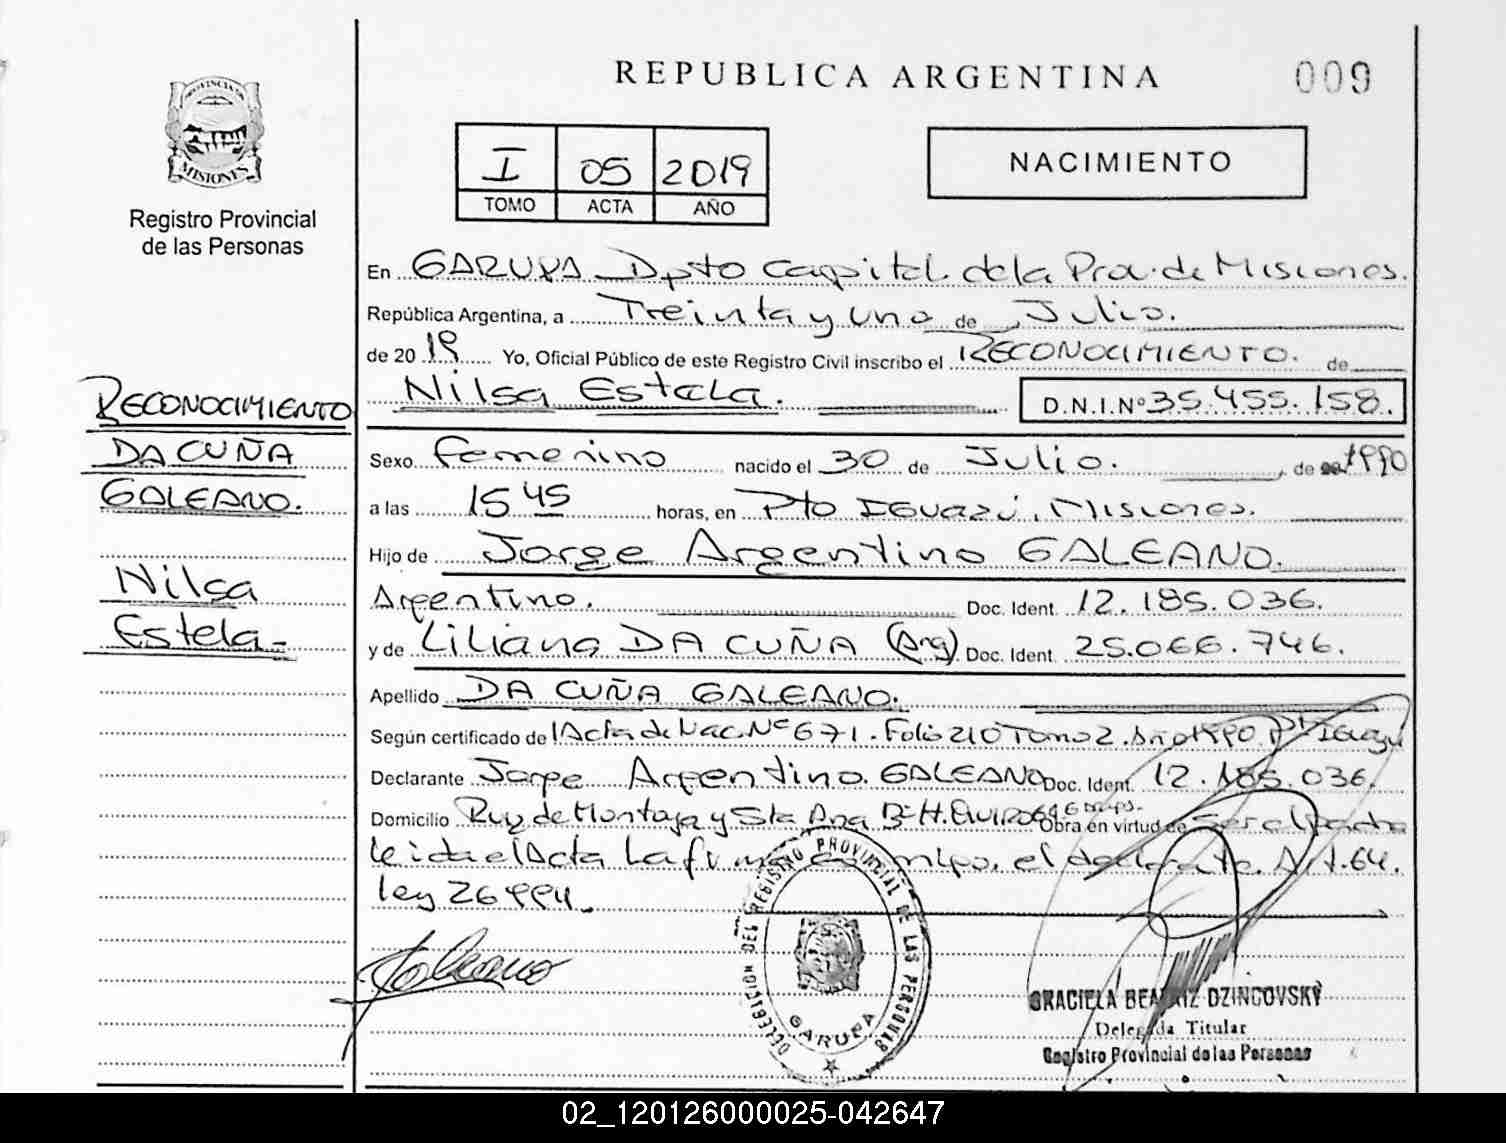 REPUBLICA ARGENTINA
009
PROVINCIA DE
MISIONES
Registro Provincial
de las Personas
I 05 2019
TOMO ACTA AÑO
NACIMIENTO
En GARUPA Dpto Capital de la Prov. de Misiones.
República Argentina, a Treinta y uno de Julio.
de 2019 Yo, Oficial Público de este Registro Civil inscribo el RECONOCIMIENTO. de
Nilsa Estela. D.N.I.Nº 35.455.158.
RECONOCIMIENTO
DA CUÑA
GALEANO.
Nilsa
Estela-
Sexo Femenino nacido el 30 de Julio. de 1990
a las 15 45 horas, en Pto Iguazú, Misiones.
Hijo de Jorge Argentino GALEANO.
Argentino. Doc. Ident. 12.185.036.
y de Liliana DA CUÑA (Arg) Doc. Ident. 25.066.746.
Apellido DA CUÑA GALEANO.
Según certificado de Acta de Nac. Nº 671. Folio 210 Tomo 2. Año 1990 Pto Iguazu
Declarante Jorge Argentino GALEANO Doc. Ident. 12.185.036.
Domicilio Ruiz de Montoya y Sta Ana Bº H. Obra en virtud de Ser el Padre
leida el Acta La firma el declarante. Art. 64.
ley 26994.
Galeano
DELEGACION DEL REGISTRO PROVINCIAL DE LAS PERSONAS
GARUPA
GRACIELA BEATRIZ DZINCOVSKY
Delegada Titular
Registro Provincial de las Personas
02_120126000025-042647